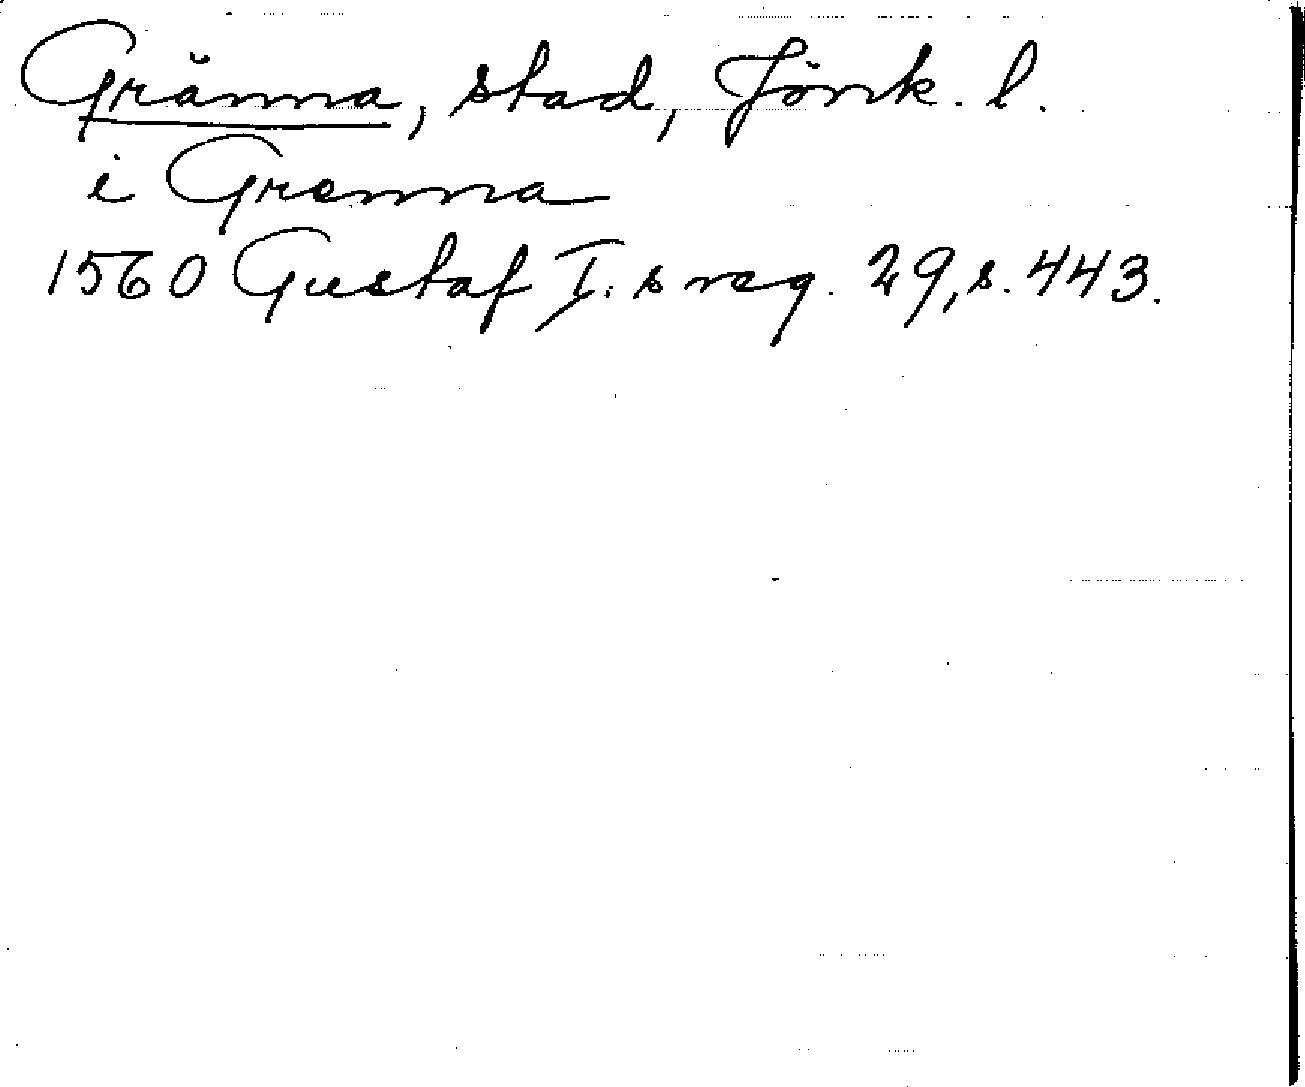 Gränna, stad, Jönk. l.
i Grenna
1560 Gustaf I:s reg. 29, s. 443.